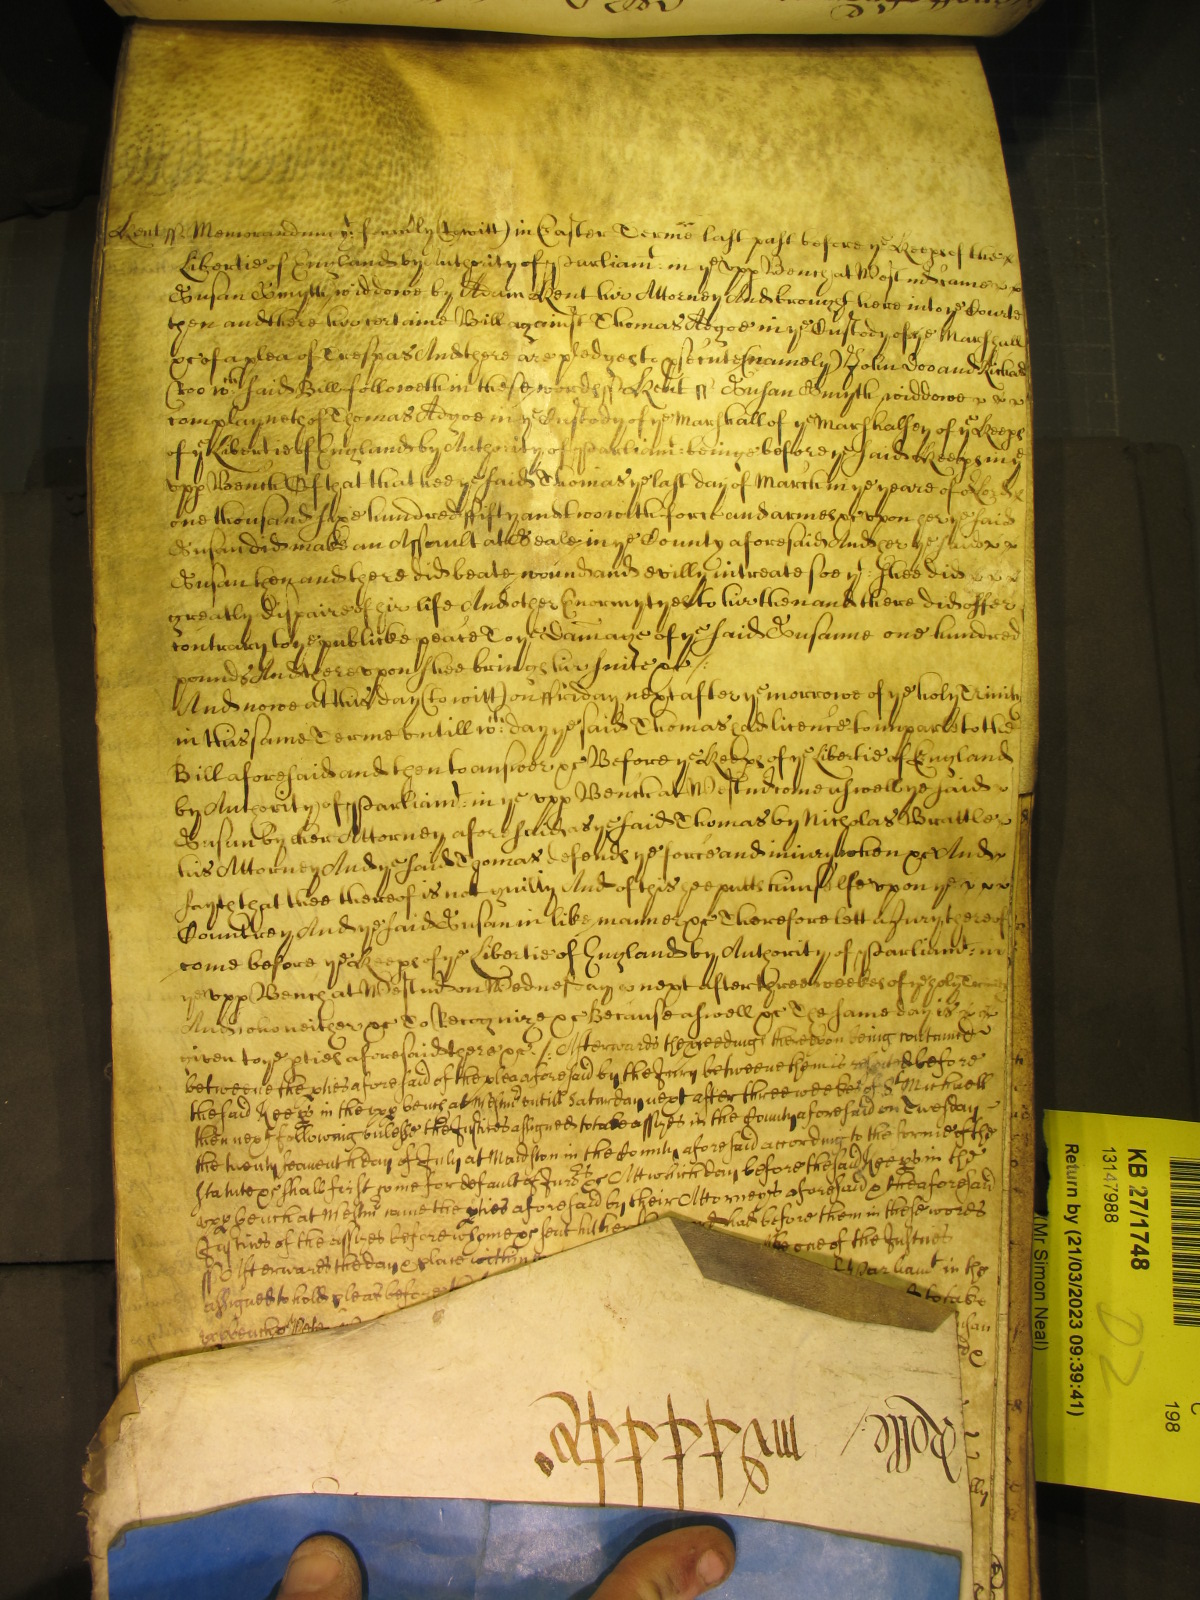 Kent ss Memorandum yt formerly (to witt) in Easter Terme last past before ye Keeprs of the
Libertie of England by Authority of Parliamt: in ye upp Bench at Westm came
Susan Smyth widdowe by Adam Kent her Attorney And brought here into ye Courte
then and there her certaine Bill against Thomas Adgoe in ye Custody of ye Marshall
&c of a plea of Trespas And there are pledges to psecute (namely) John Doo and Richard
Roo wch said Bill followeth in these words ss Kent ss Susan Smyth widdowe
complayneth of Thomas Adgoe in ye Custody of ye Marshall of ye Marshalsey of ye Keeps
of ye Libertie of England by Authority of Parliamt: beinge before ye said Keeps in ye
upp Bench Of that that hee ye said Thomas ye last day of March in ye yeare of or Lord
one thousand sixe hundred fifty and two with force and armes &c upon her ye said
Susan did make an Assault at Seale in ye County aforesaid And her ye said
Susan then and there did beate wound and evilly intreate soe yt: shee did
greatly dispaire of hir life And other Enormytyes to her then and there did offer
contrary to ye publicke peace To ye Damage of ye said Susanne one hundred
pounds And thereupon shee brings her suite &c /:
And nowe at this day (to witt) on ffriday next after ye morrowe of ye holy Trinity
in this same Terme untill wch: day ye said Thomas had licence to imparle to the
Bill aforesaid and then to answer &c Before ye Keeps of ye Libertie of England
by Authority of Parliamt: in ye upp Bench at Westm come aswell ye said
Susan by her Attorney aforesaid as ye said Thomas by Nicholas Brattle
his Attorney And ye said Thomas defends ye force and iniury when &c And
sayth that hee thereof is not guilty And of this hee putts himselfe upon ye
Countrey And ye said Susan in like manner &c Therefore lett a Jury thereof
come before ye Keeps of ye Libertie of England by Authority of Parliamt: in
ye upp Bench at Westm on Wednesday next after three weekes of ye holy Trinity
And who neither &c To Recognize &c Because aswell &c The same day is
given to ye pties aforesaid there &c /: Afterwards the pceeding thereupon being continued
betweene the pties aforesaid of the plea aforesaid by the Jury betweene them is respited before
the said Keeps in the upp bench at Westmr untill Saturday next after three weekes of St Michaell
then next following unlesse the Justices assigned to take assizes in the County aforesaid on Twesday
the twenty seaventh day of July at Maidston in the County aforesaid according to the forme of the
statute &c shall first come for default of Jurs &c Att which day before the said Keeps in the
upp bench at Westmr came the pties aforesaid by their Attorneys aforesaid & the aforesaid
Justices of the assizes before whome &c sent hither before them in these words
ss Afterwards the day & place within one of the Justices
assigned to hold pleas before Parliamt in the
to take
upp bench
Rolle
KB 27/1748
13147988
Return by (21/03/2023 09:39:41)
(Mr Simon Neal)
D2
198